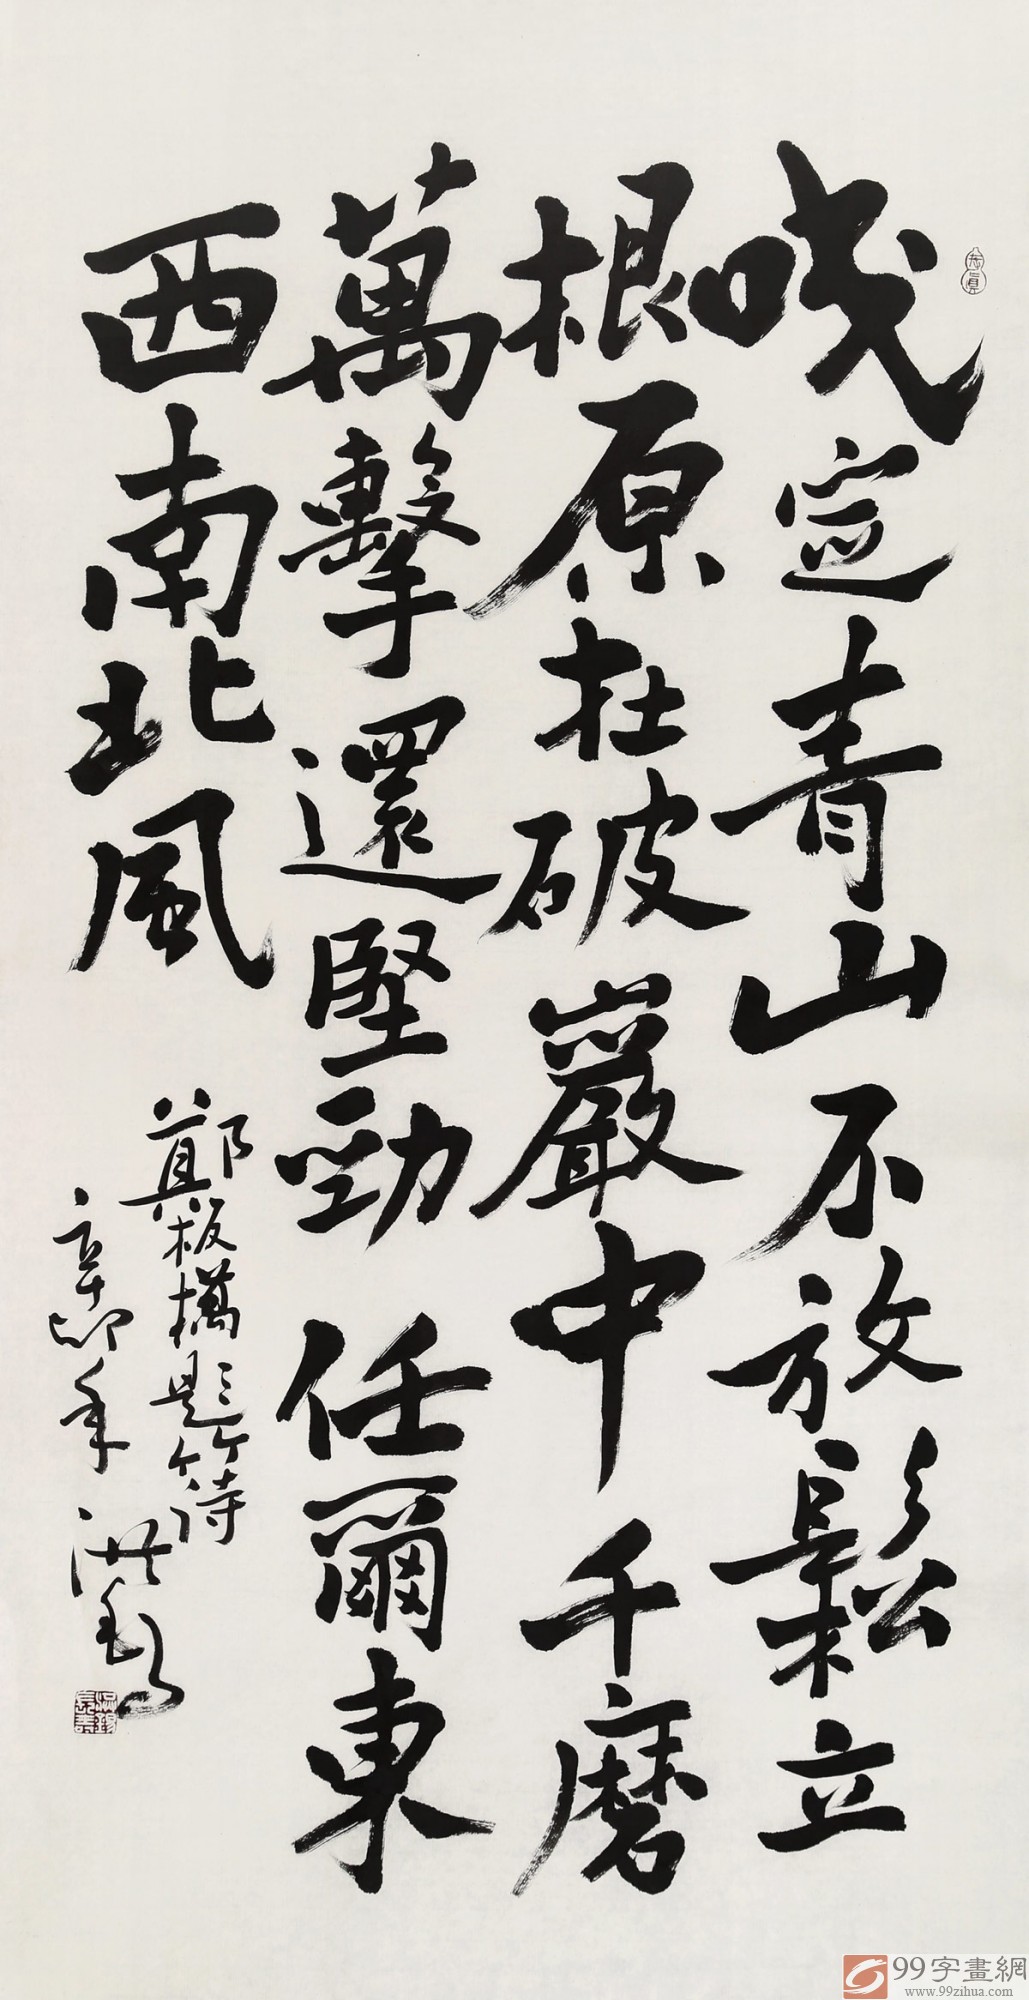 咬定青山不放鬆立
根原在破巖中千磨
萬擊還堅勁任爾東
西南北風
鄭板橋題竹詩
辛卯年
99字畫網
www.99zihua.com